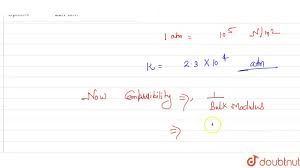 1 atm = 10⁵ N/m2
K = 2.3 × 10⁴ atm
Now Compressibility ⇒ 1 / Bulk Modulus
⇒
doubtnut